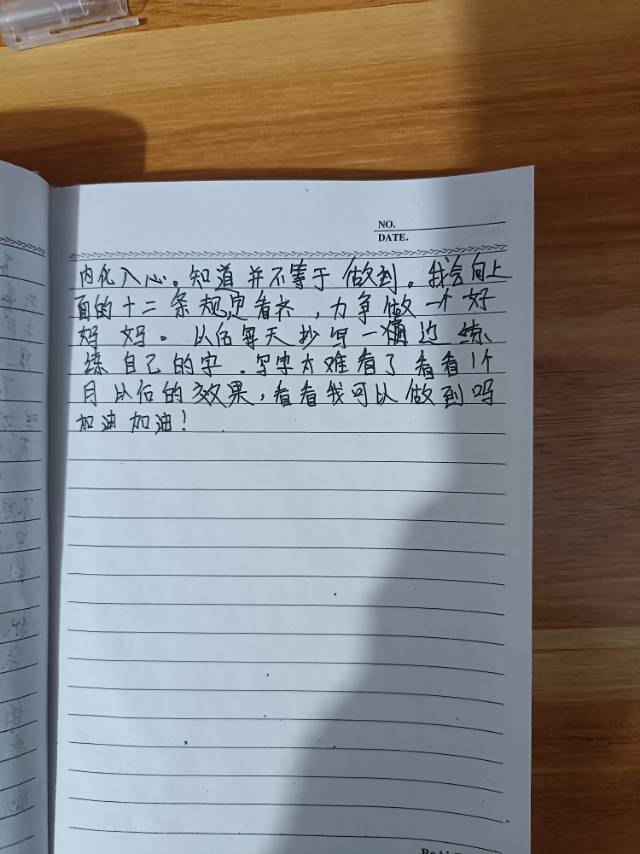 NO.
DATE.
内化入心。知道并不等于做到。我会向上
面的十二条规定看齐，力争做一个好
妈妈。以后每天抄写一遍过练
练自己的字．写字太难看了看看1个
月以后的效果，看看我可以做到吗
加油加油！